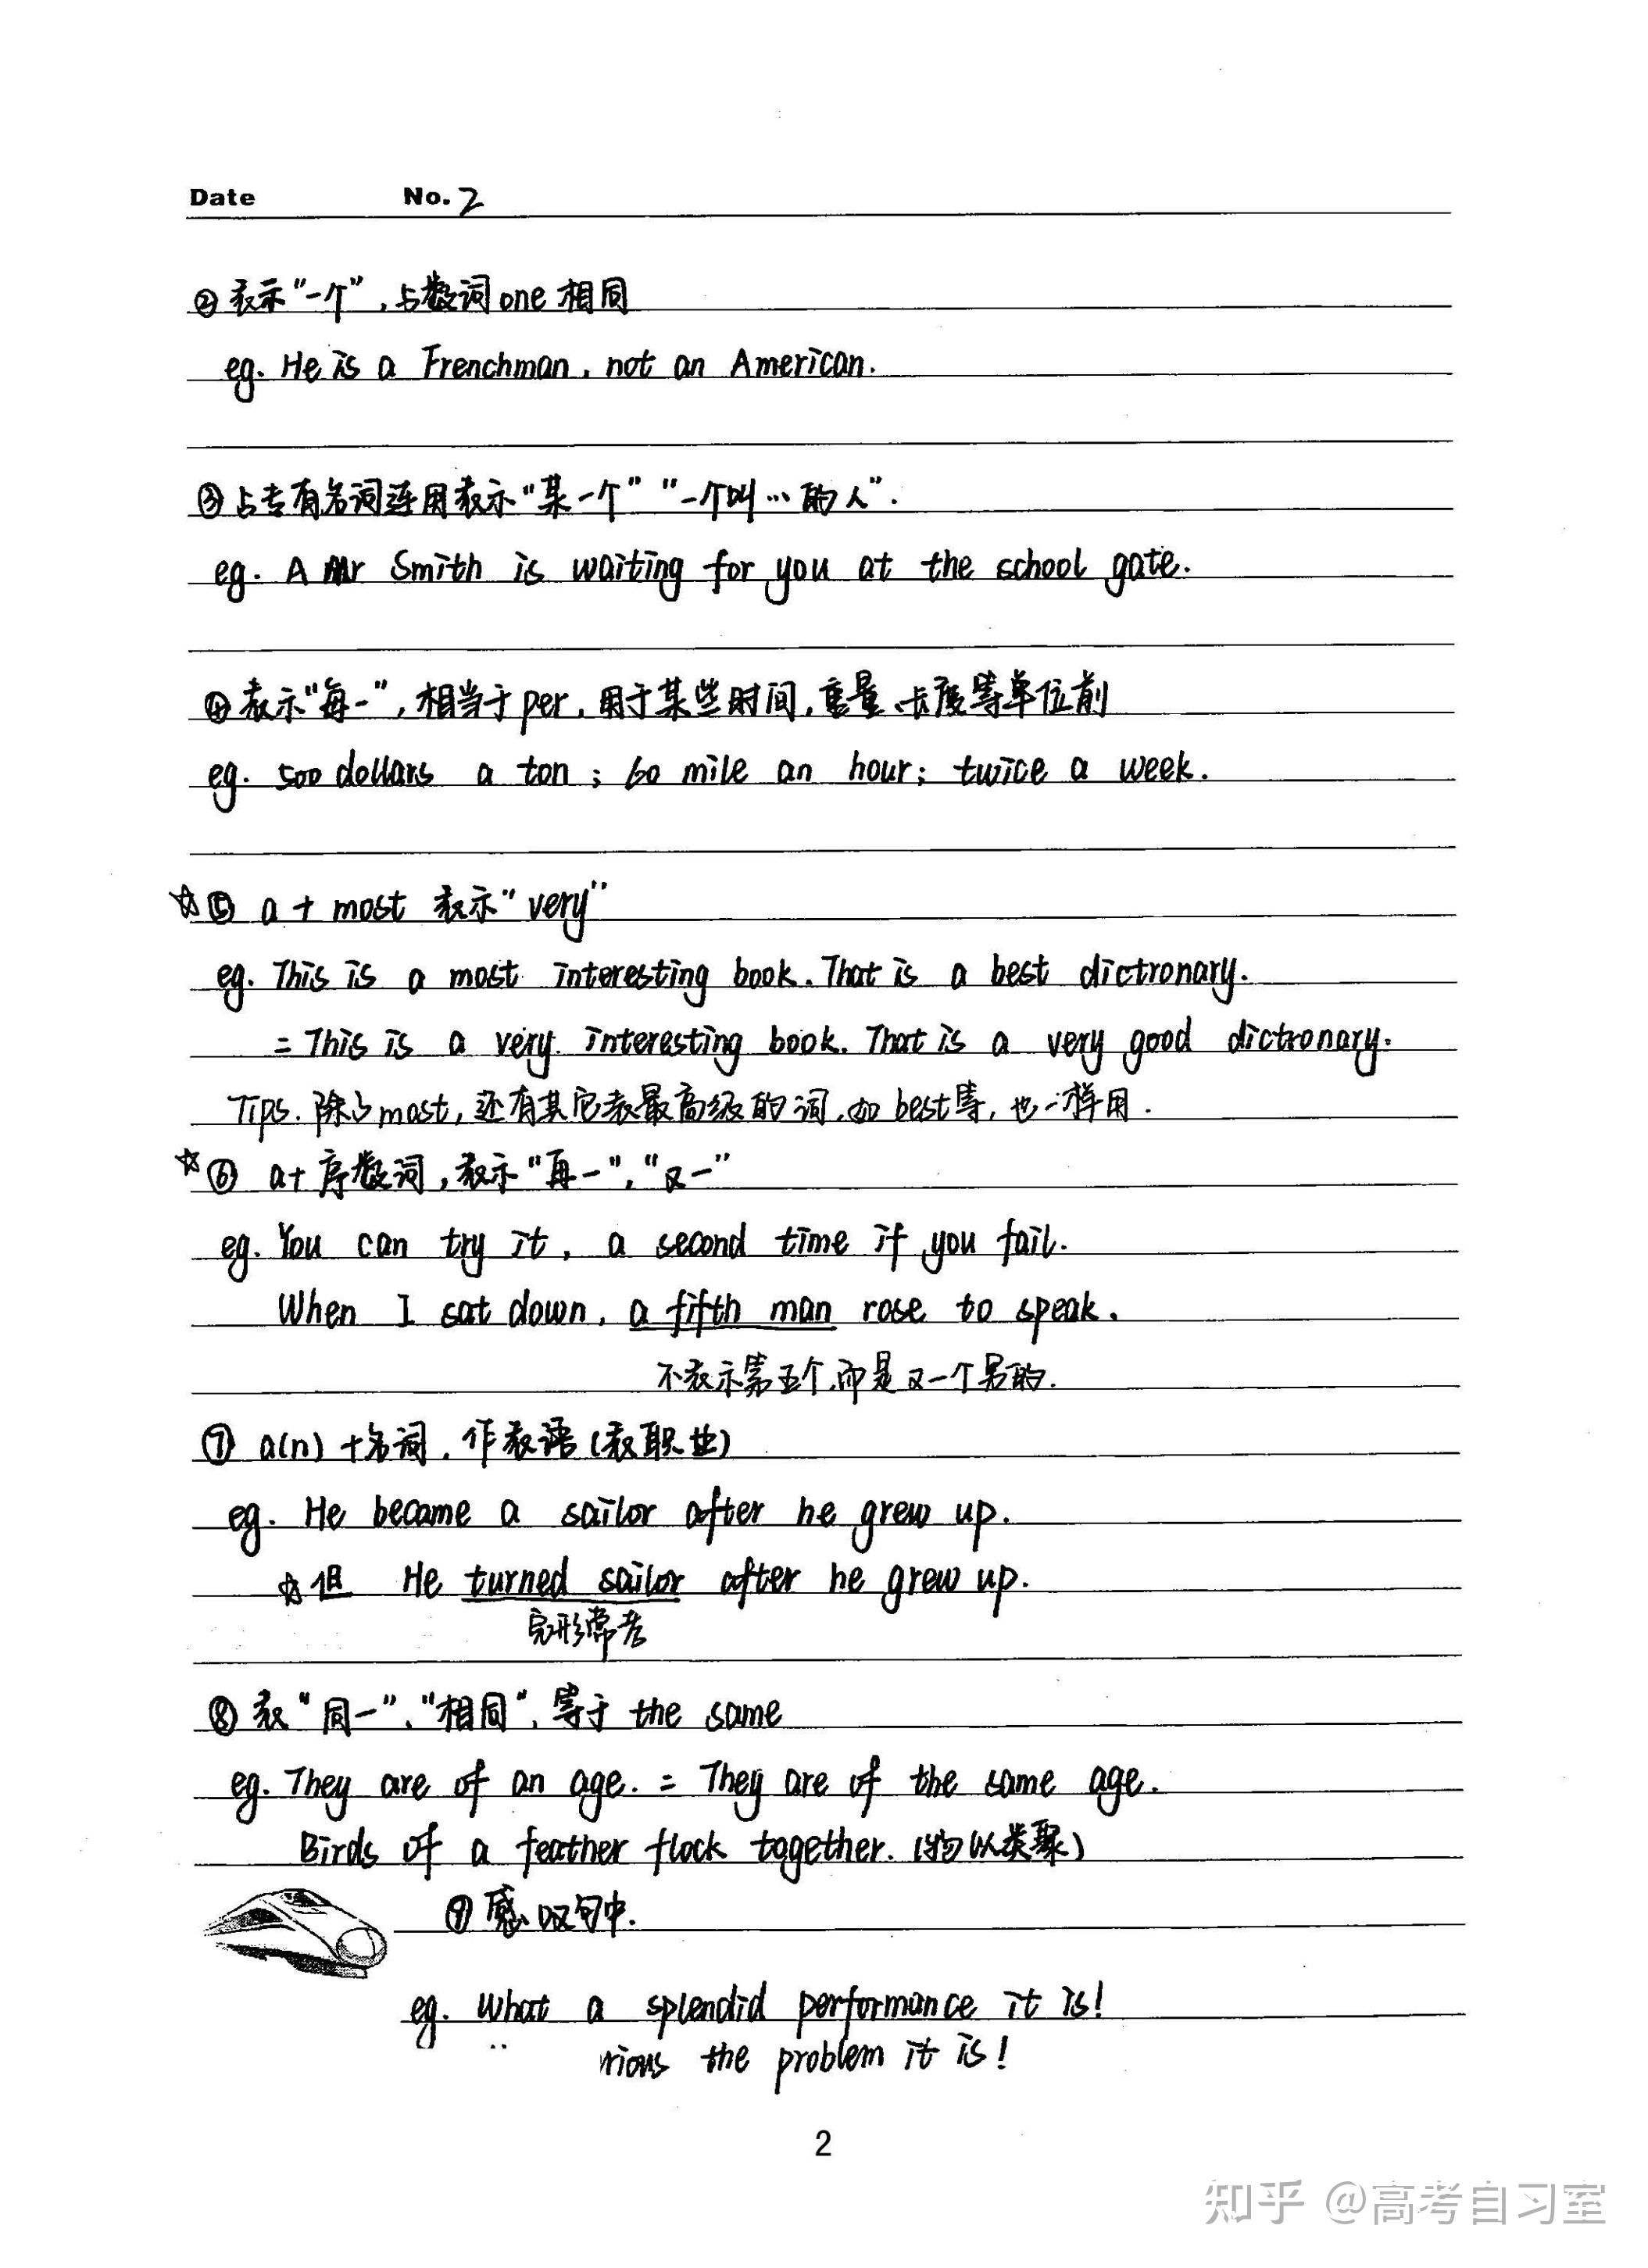 Date No. 2
② 表示“一个”,与数词one相同
eg. He is a Frenchman, not an American.
③ 与专有名词连用表示“某一个”“一个叫…的人”.
eg. A Mr Smith is waiting for you at the school gate.
④ 表示“每一”,相当于per,用于某些时间,重量、长度等单位前
eg. 500 dollars a ton; 60 mile an hour; twice a week.
☆⑤ a + most 表示“very”
eg. This is a most interesting book. That is a best dictronary.
= This is a very interesting book. That is a very good dictronary.
Tips. 除了most,还有其它表最高级的词,如best等,也一样用.
☆⑥ a+序数词,表示“再一”,“又一”
eg. You can try it, a second time if you fail.
When I sat down, a fifth man rose to speak.
不表示第五个,而是又一个男的.
⑦ a(n)+名词,作表语(表职业)
eg. He became a sailor after he grew up.
☆但 He turned sailor after he grew up.
完形常考
⑧ 表“同一”、“相同”,等于 the same
eg. They are of an age. = They are of the same age.
Birds of a feather flock together. (物以类聚)
⑨ 感叹句中.
eg. What a splendid performance it is!
the problem it is!
2
知乎 @高考自习室